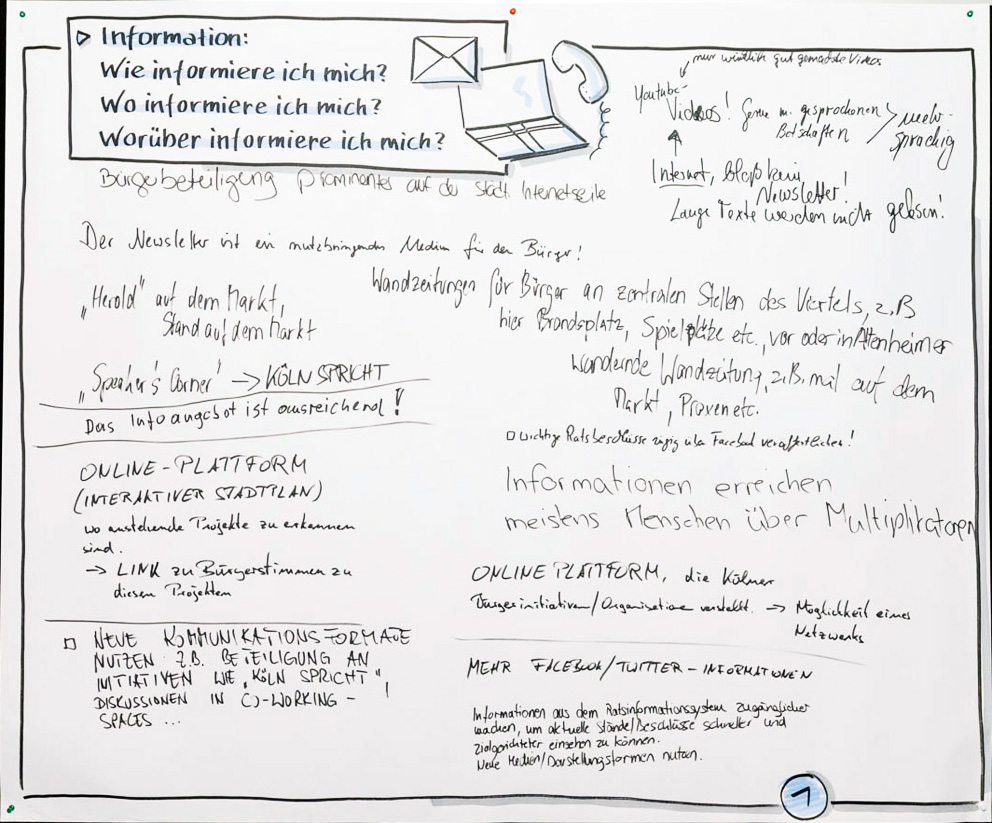 Information:
Wie informiere ich mich?
Wo informiere ich mich?
Worüber informiere ich mich?
Bürgerbeteiligung prominenter auf der städt. Internetseite
nur wirklich gut gemachte Videos
Youtube-
Videos! Gerne m. gesprochenen
Botschaften
mehr-
sprachig
Internet, bloß kein
Newsletter!
Lange Texte werden nicht gelesen!
Der Newsletter ist ein nutzbringendes Medium für den Bürger!
„Herold" auf dem Markt,
Stand auf dem Markt
„Speaker's Corner" → KÖLN SPRICHT
Das Infoangebot ist ausreichend!
Wandzeitungen für Bürger an zentralen Stellen des Viertels, z.B
hier Brandsplatz, Spielplätze etc., vor oder in Altenheimer
wandernde Wandzeitung, z.B. mal auf dem
Markt, Praxen etc.
wichtige Ratsbeschlüsse zügig über Facebook veröffentlichen!
Informationen erreichen
meistens Menschen über Multiplikatoren
ONLINE-PLATTFORM
(INTERAKTIVER STADTPLAN)
wo anstehende Projekte zu erkennen
sind.
→ LINK zu Bürgerstimmen zu
diesen Projekten
ONLINE PLATTFORM, die Kölner
Bürgerinitiativen/Organisationen vorstellt. → Möglichkeit eines
Netzwerks
NEUE KOMMUNIKATIONSFORMATE
NUTZEN Z.B. BETEILIGUNG AN
INITIATIVEN WIE „KÖLN SPRICHT",
DISKUSSIONEN IN CO-WORKING-
SPACES ...
MEHR FACEBOOK/TWITTER-INFORMATIONEN
Informationen aus dem Ratsinformationssystem zugänglicher
machen, um aktuelle Stände/Beschlüsse schneller und
zielgerichteter einsehen zu können.
Neue Medien/Darstellungsformen nutzen.
1